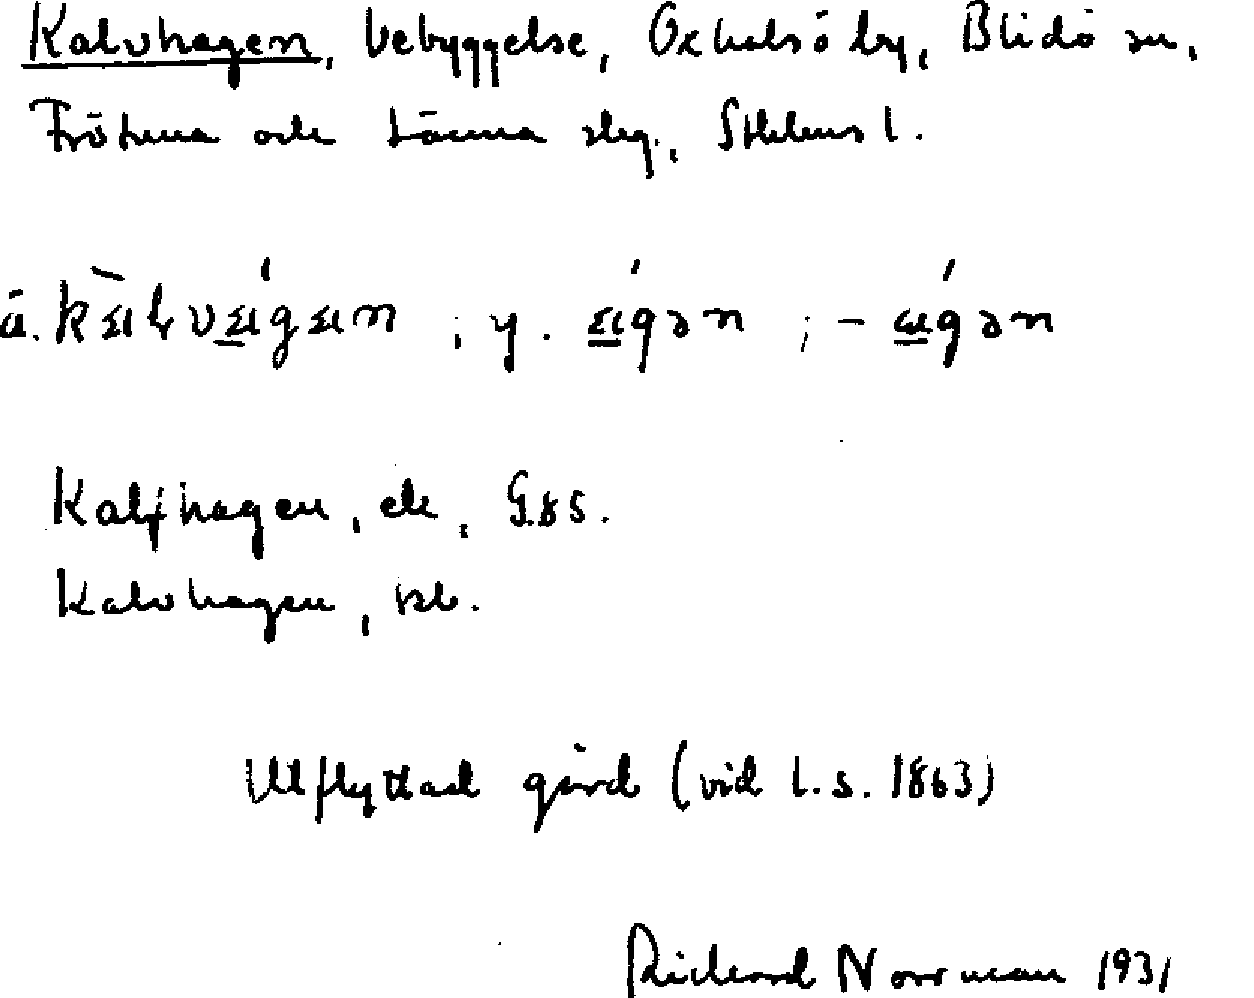 Kalvhagen, bebyggelse, Oxhalsö by, Blidö sn,
Frötuna och Länna slag, Sthlms l.
ä. ; y. ; -
Kalfhagen, ek, G.85.
Kalvhagen, rsb.
Utflyttad gård (vid l.s. 1863)
Richard Norrman 1931